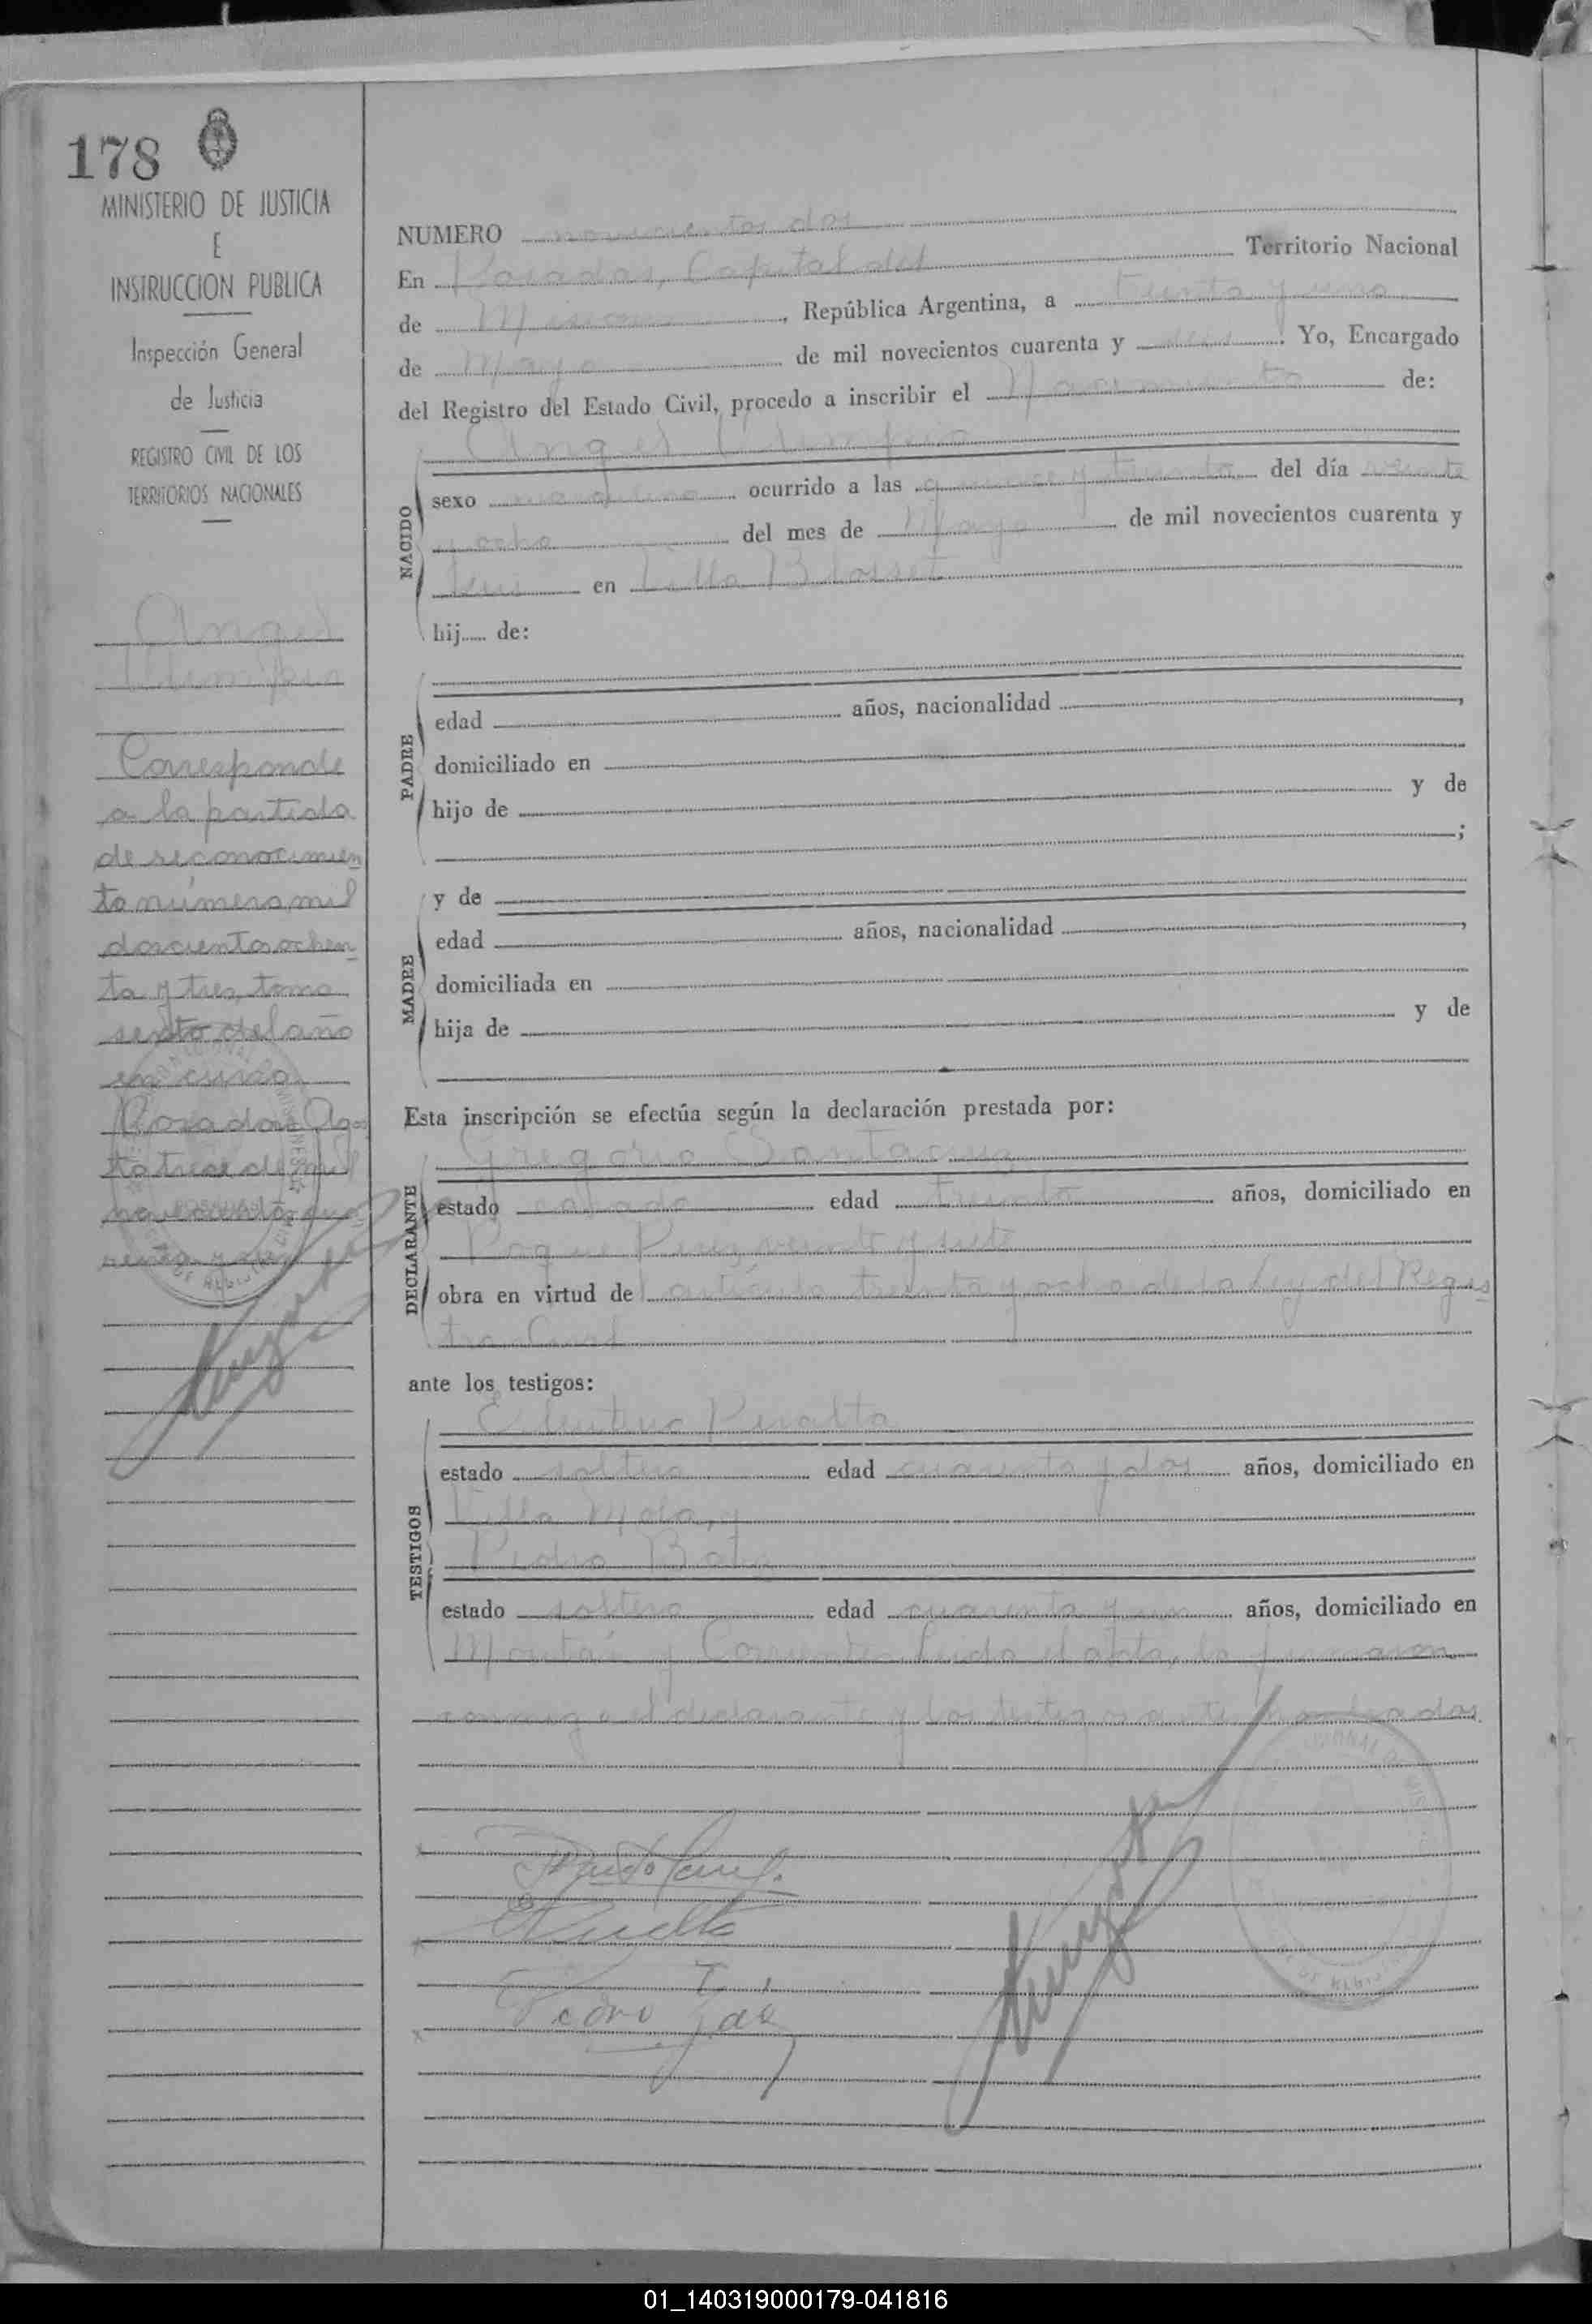 178
MINISTERIO DE JUSTICIA
E
INSTRUCCION PUBLICA
Inspección General
de Justicia
REGISTRO CIVIL DE LOS
TERRITORIOS NACIONALES
Angel
Corresponde
a la partida
de reconocimien
to número mil
doscientos ochen
ta y tres, tomo
sexto del año
en curso
Posadas, Agos
to trece de mil
novecientos cua
renta y seis
NUMERO novecientos dos
En Posadas, Capital del Territorio Nacional
de Misiones, República Argentina, a treinta y uno
de Mayo de mil novecientos cuarenta y seis. Yo, Encargado
del Registro del Estado Civil, procedo a inscribir el Nacimiento de:
Angel
NACIDO
sexo masculino ocurrido a las quince y treinta del día veinte
y ocho del mes de Mayo de mil novecientos cuarenta y
seis en Villa Blosset
hij..... de:
PADRE
edad años, nacionalidad ,
domiciliado en
hijo de y de
;
MADRE
y de
edad años, nacionalidad ,
domiciliada en
hija de y de
Esta inscripción se efectúa según la declaración prestada por:
DECLARANTE
Gregorio Santacruz
estado casado edad treinta años, domiciliado en
Roque Perez veinte y siete
obra en virtud del artículo treinta y ocho de la Ley del Regis
tro Civil
ante los testigos:
TESTIGOS
Peralta
estado soltero edad cuarenta y dos años, domiciliado en
Villa Mola, y
Pedro
estado soltero edad cuarenta y un años, domiciliado en
y Corrientes. Leida el acta, la firmaron
conmigo el declarante y los testigos antes nombrados.
Pedro
01_140319000179-041816